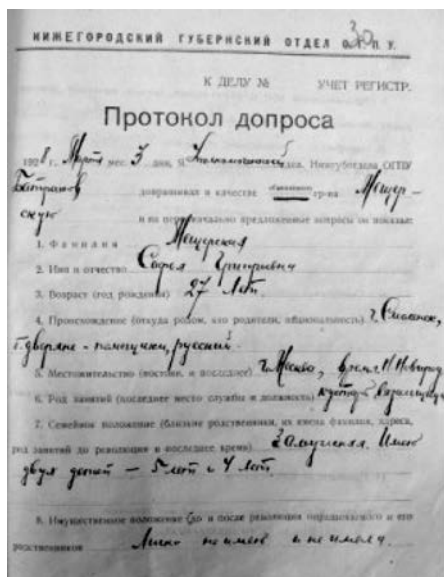 30
НИЖЕГОРОДСКИЙ ГУБЕРНСКИЙ ОТДЕЛ О.Г.П.У.
К ДЕЛУ № УЧЕТ РЕГИСТР.
Протокол допроса
1928 г. Марта мес. 3 дня, я, Уполномоченный отдел. Нижгуботдела ОГПУ
допрашивал в качестве гр-на Мещер-
скую и на первоначально предложенные вопросы он показал:
1. Фамилия Мещерская
2. Имя и отчество Софья Григорьевна
3. Возраст (год рождения) 27 лет.
4. Происхождение (откуда родом, кто родители, национальность) г. Смоленск,
б. дворяне - помещики, русский.
5. Местожительство (постоян. и последнее) г. Москва, врем. г. Н. Новгород
6. Род занятий (последнее место службы и должность)
7. Семейное положение (близкие родственники, их имена фамилии, адреса,
род занятий до революции и последнее время) Замужняя. Имею
двух детей — 5 лет и 4 лет.
8. Имущественное положение (до и после революции опрашиваемого и его
родственников не имею и не имела.